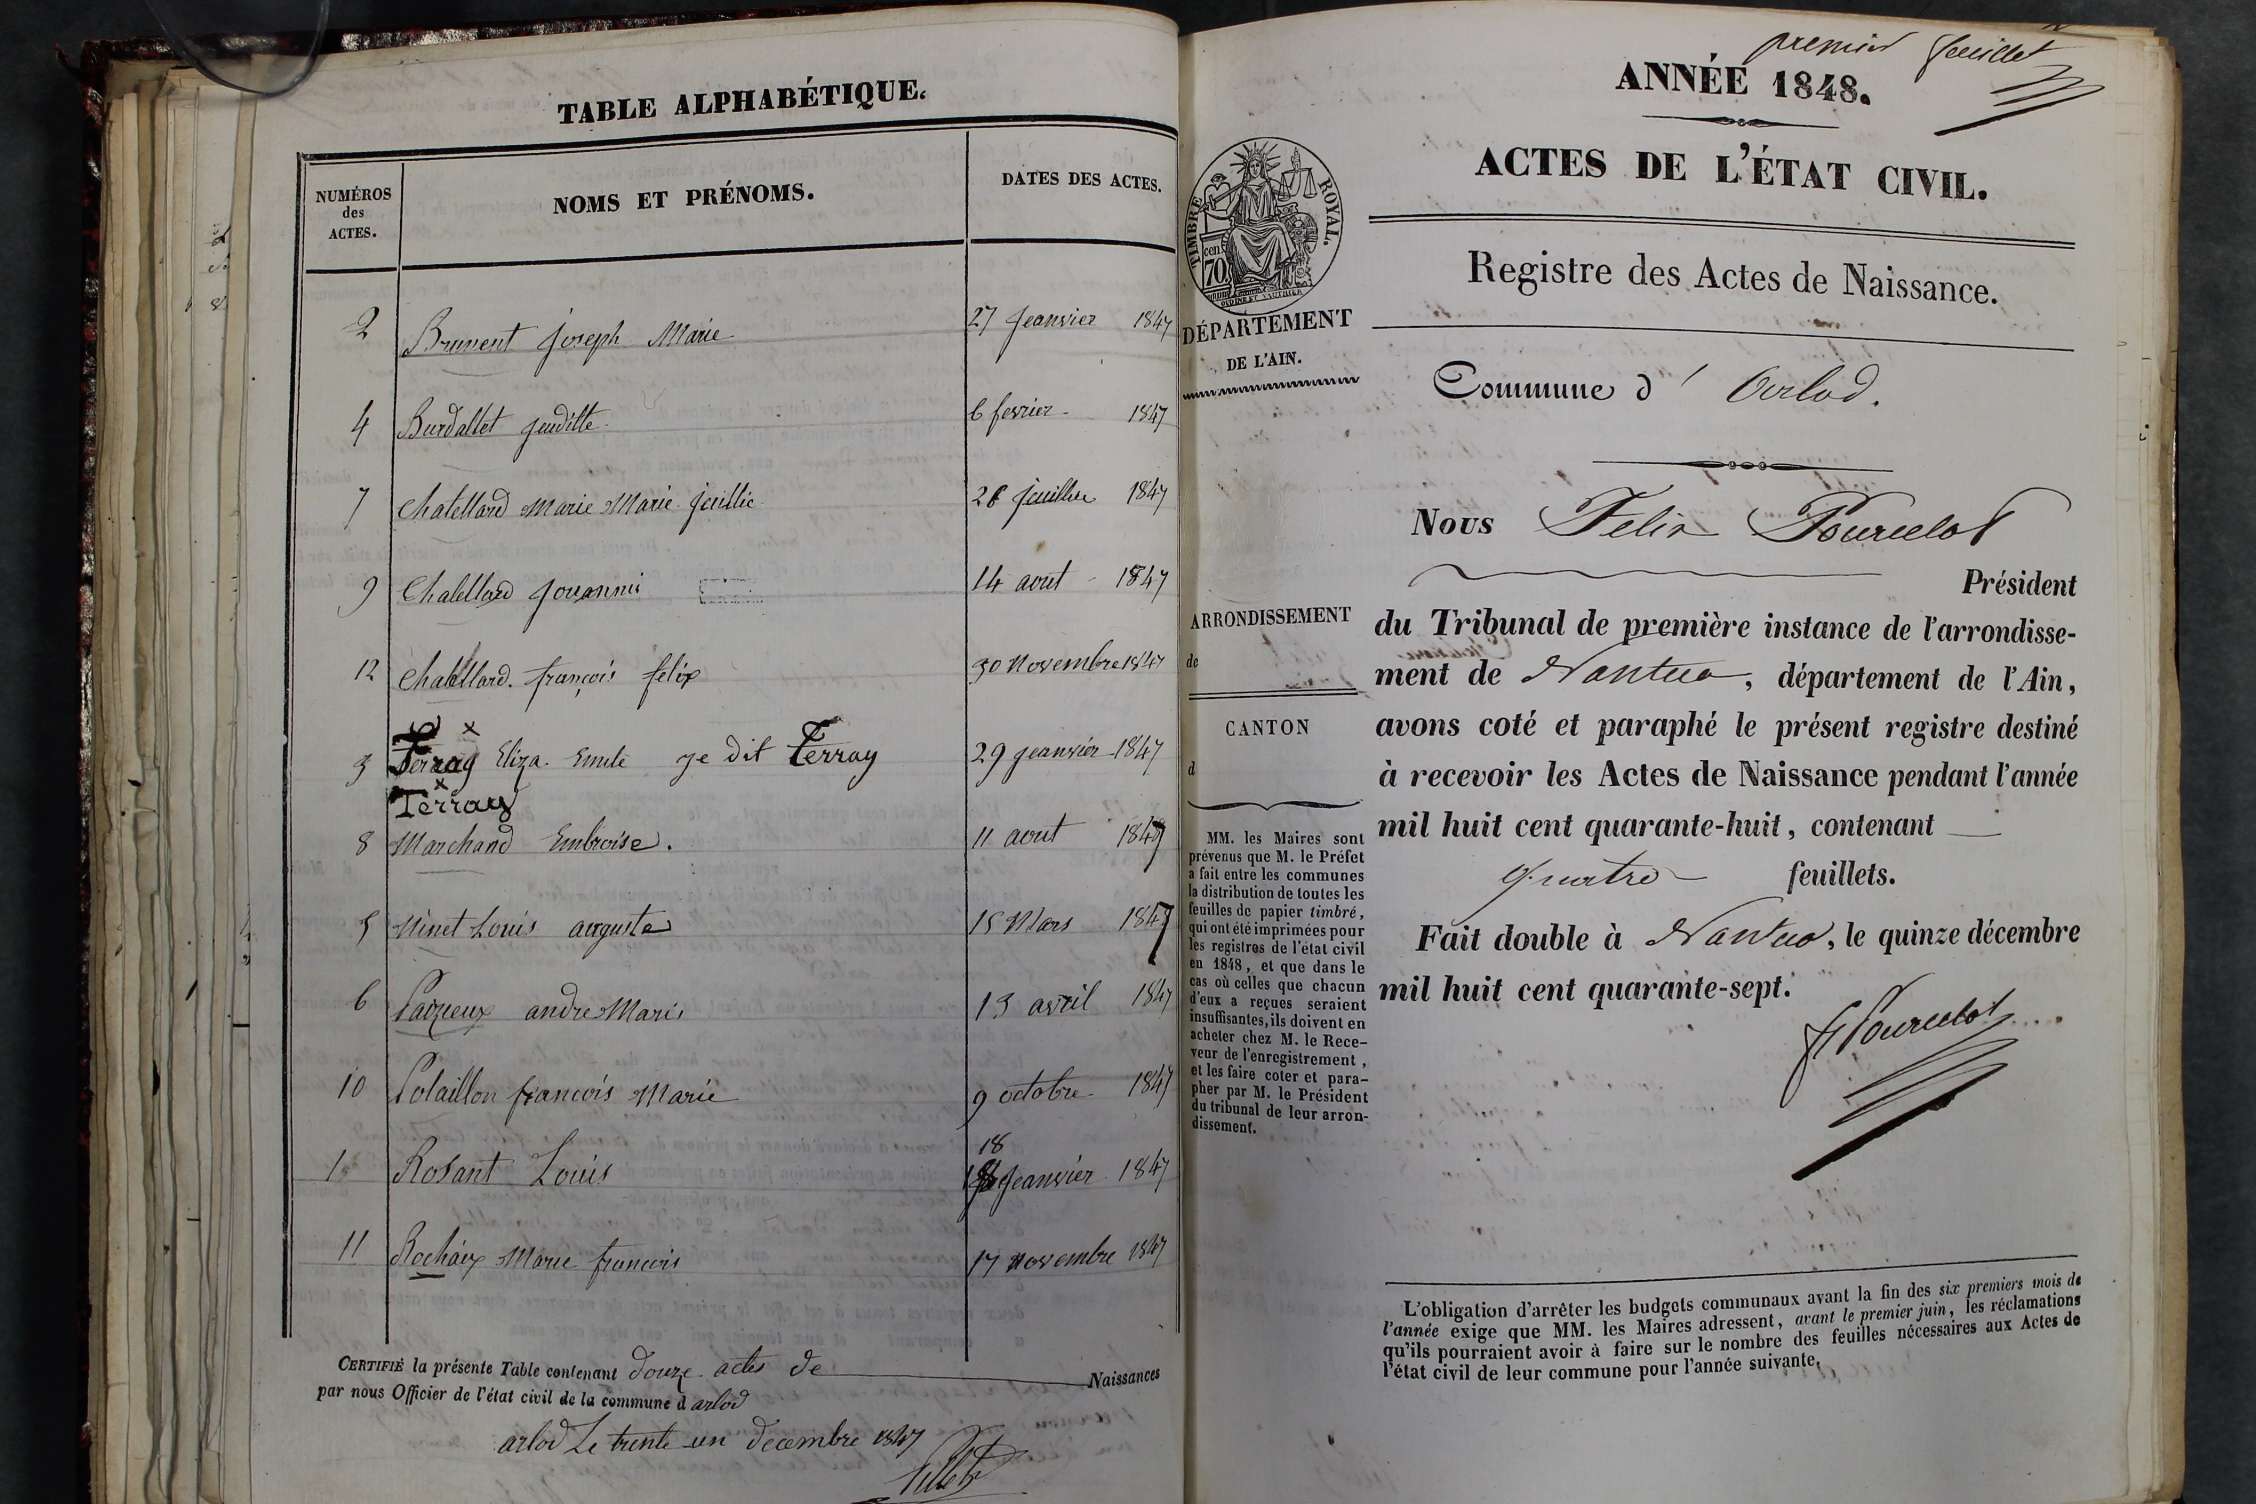 TABLE ALPHABÉTIQUE.
NUMÉROS des ACTES. NOMS ET PRÉNOMS. DATES DES ACTES.
2 Brument joseph Marie 27 Jeanvier 1847
4 Burdallet juditte 6 fevrier 1847
7 Chatellard Marie Marie 28 1847
9 Chatellard 14 aout 1847
12 Chatellard françois felix 30 Novembre 1847
3 Ferray Eliza Emile je dit Ferray 29 jeanvier 1847
Terray
8 Marchand Embroise. 11 aout 1847
5 Ninet Louis auguste 15 Mars 1847
6 andre Marie 13 avril 1847
10 Polaillon francois Marie 9 octobre 1847
18
1 Rosant Louis Jeanvier 1847
11 Rochaix Marie francois 17 Novembre 1847
CERTIFIÉ la présente Table contenant douze actes de Naissances
par nous Officier de l'état civil de la commune d arlod
arlod Le trente un decembre 1847
premier feuillet
ANNÉE 1848.
ACTES DE L'ÉTAT CIVIL.
Registre des Actes de Naissance.
Commune d' Arlod.
Nous Felix Pourcelot
Président
du Tribunal de première instance de l'arrondisse-
ment de Nantua, département de l'Ain,
avons coté et paraphé le présent registre destiné
à recevoir les Actes de Naissance pendant l'année
mil huit cent quarante-huit, contenant
quatre feuillets.
Fait double à Nantua, le quinze décembre
mil huit cent quarante-sept.
F Pourcelot
TIMBRE ROYAL.
70 cen
DÉPARTEMENT
DE L'AIN.
ARRONDISSEMENT
de
CANTON
d
MM. les Maires sont
prévenus que M. le Préfet
a fait entre les communes
la distribution de toutes les
feuilles de papier timbré,
qui ont été imprimées pour
les registres de l'état civil
en 1848, et que dans le
cas où celles que chacun
d'eux a reçues seraient
insuffisantes, ils doivent en
acheter chez M. le Rece-
veur de l'enregistrement,
et les faire coter et para-
pher par M. le Président
du tribunal de leur arron-
dissement.
L'obligation d'arrêter les budgets communaux avant la fin des six premiers mois de
l'année exige que MM. les Maires adressent, avant le premier juin, les réclamations
qu'ils pourraient avoir à faire sur le nombre des feuilles nécessaires aux Actes de
l'état civil de leur commune pour l'année suivante.